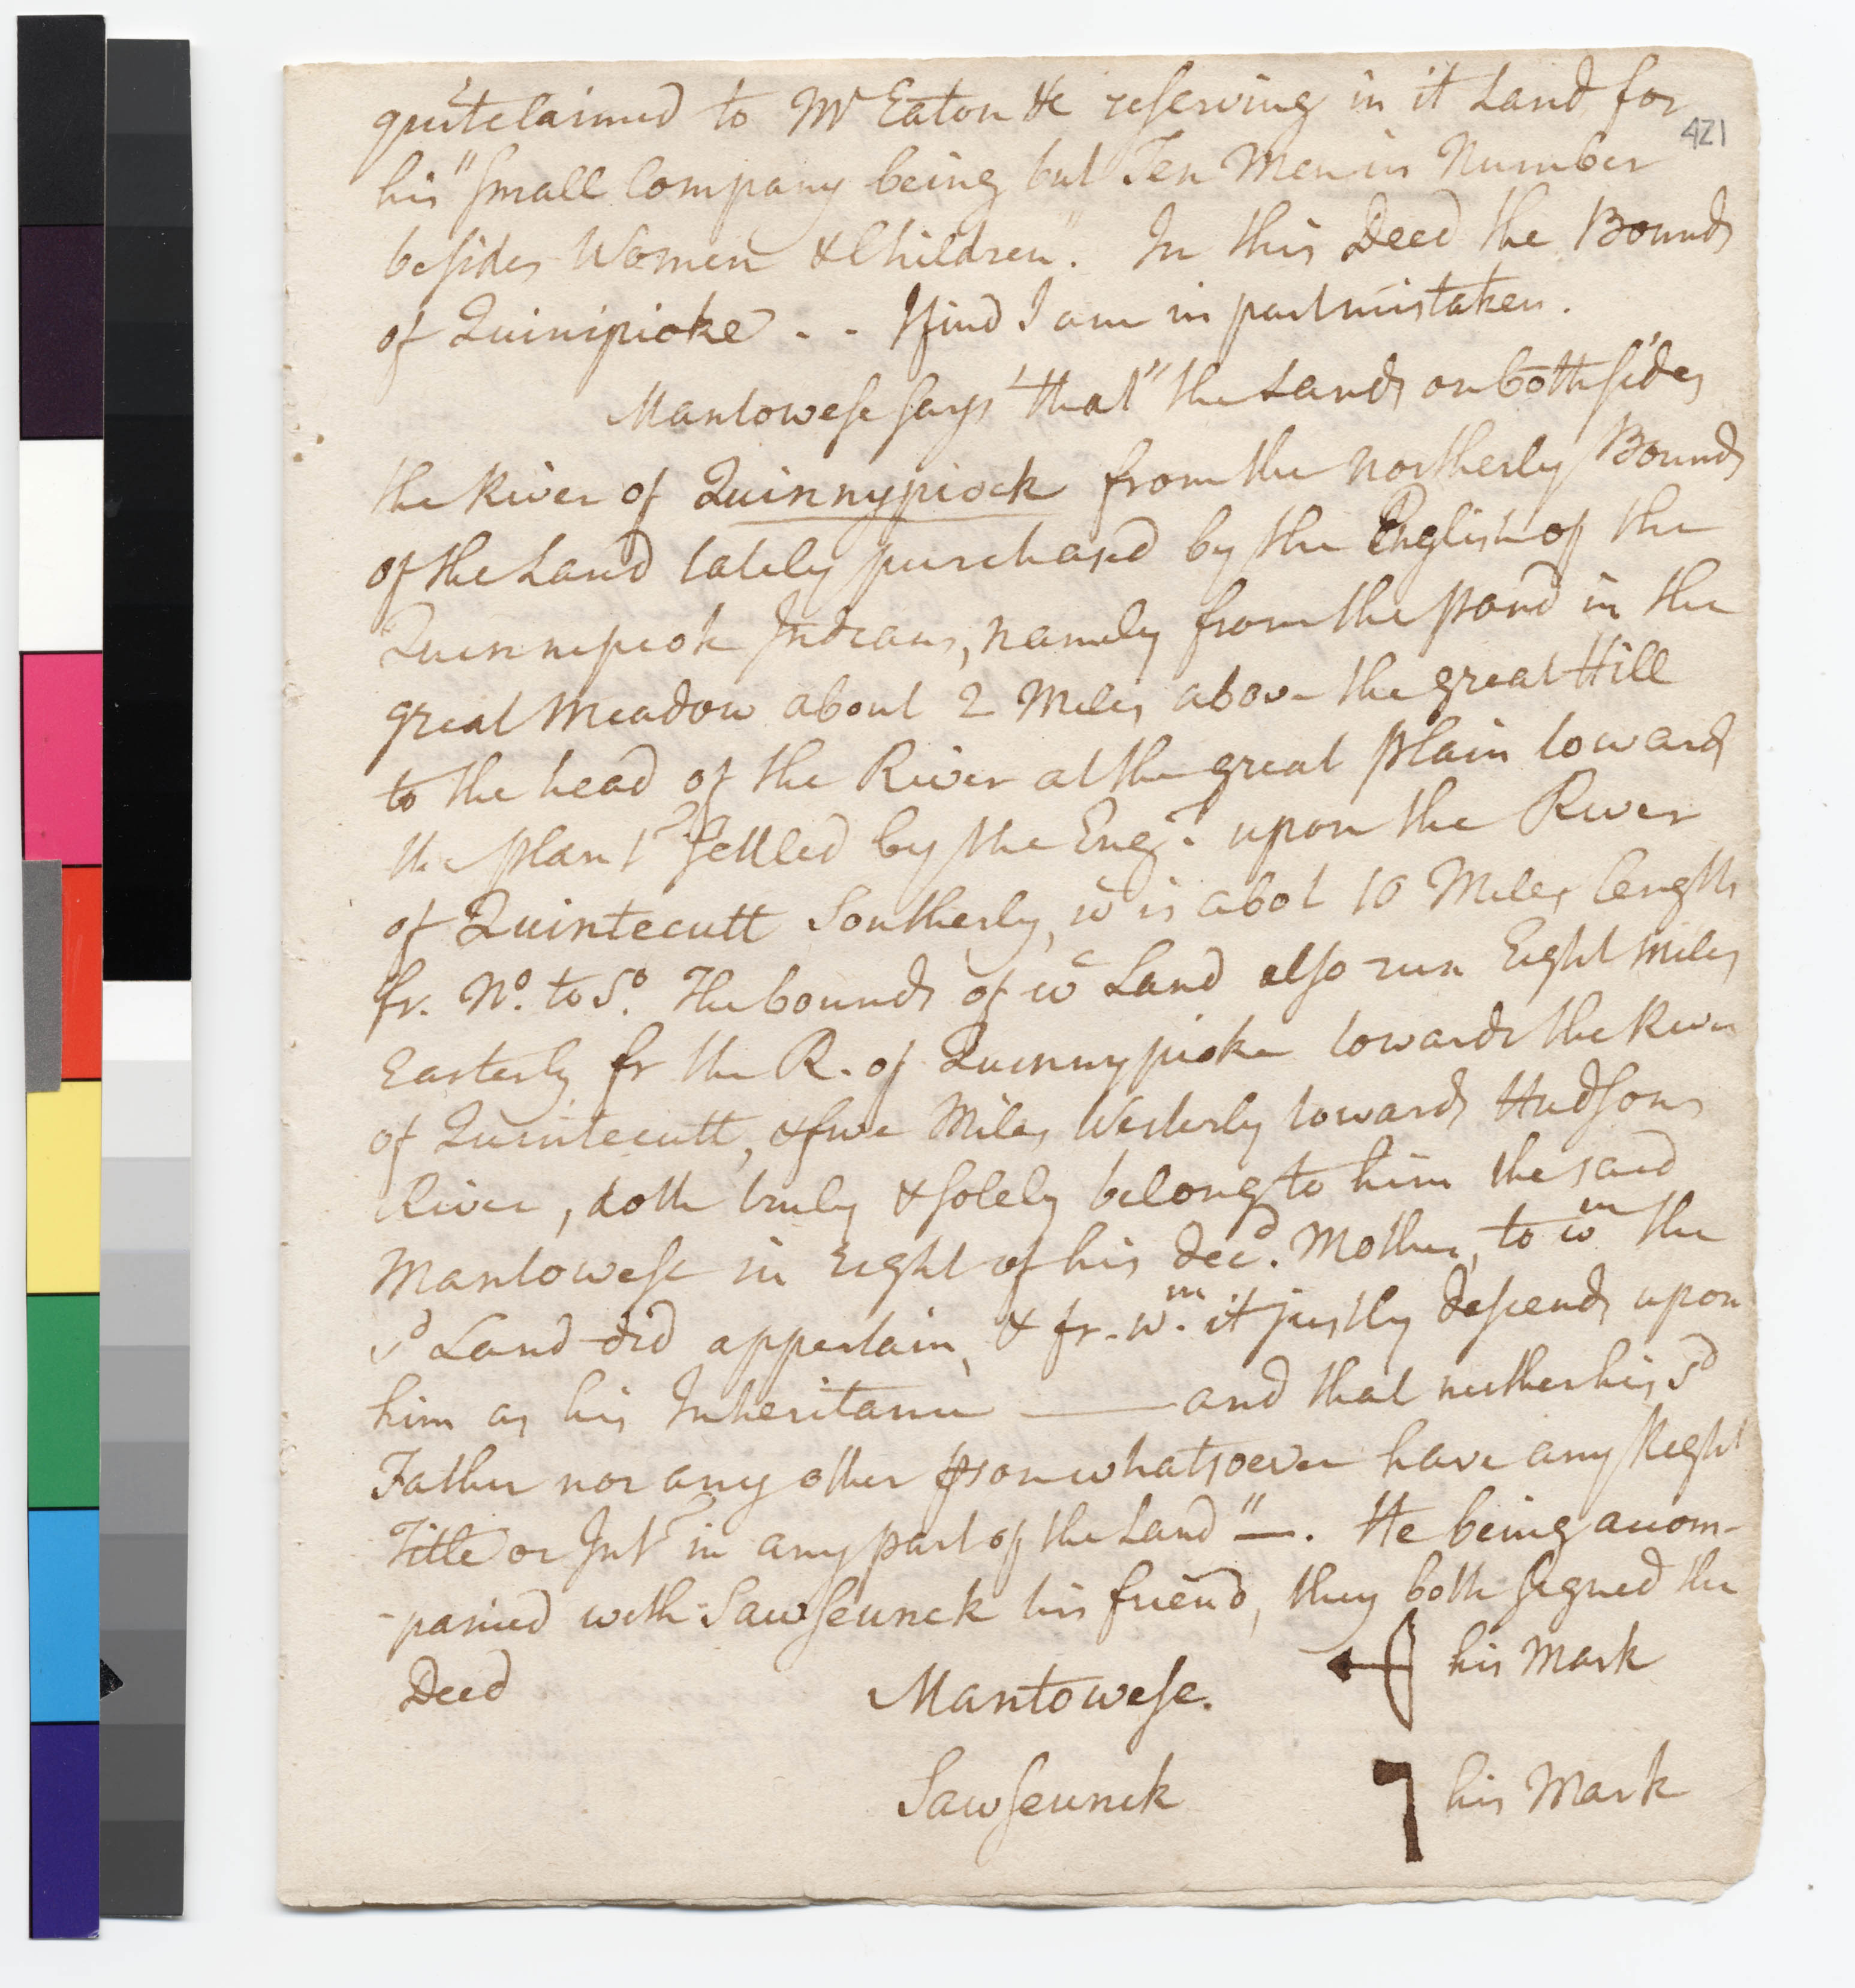 quitclaimed to Mr Eaton &c reserving in it Land for
421
his "small Company being but Ten Men in Number
besides Women & Children". In this Deed the Bounds
of Quinipioke . . I find I am in part mistaken.
Mantowese says "that" the Lands on both sides
the River of Quinnypiock from the northerly Bounds
of the Land lately purchased by the English of the
Quinnipiok Indians, namely from the pond in the
great Meadow about 2 Miles above the great Hill
to the head of the River at the great plain towards
the plantͻ settled by the Engᵈ. upon the River
of Quintecutt Southerly, wᶜ is abot 10 Miles length
fr. Nº. to Sº. The bounds of wᶜ Land also run Eight miles
Easterly fr the R. of Quinnypioke towards the River
of Quintecutt, & five Miles Westerly towards Hudsons
River, doth truly & solely belong to him the said
Mantowese in right of his decᵈ. Mother, to wᵐ the
sᵈ Land did appertain, & fr. wᵐ. it justly descends upon
him as his Inheritance —— and that neither his sᵈ
Father nor any other ꝑson whatsoever have any Right
Title or Intᵗ in any part of the Land" —. He being accom-
-panied with Sawseunck his friend, they both signed the
Deed Mantowese. his Mark
Sawseunck his Mark